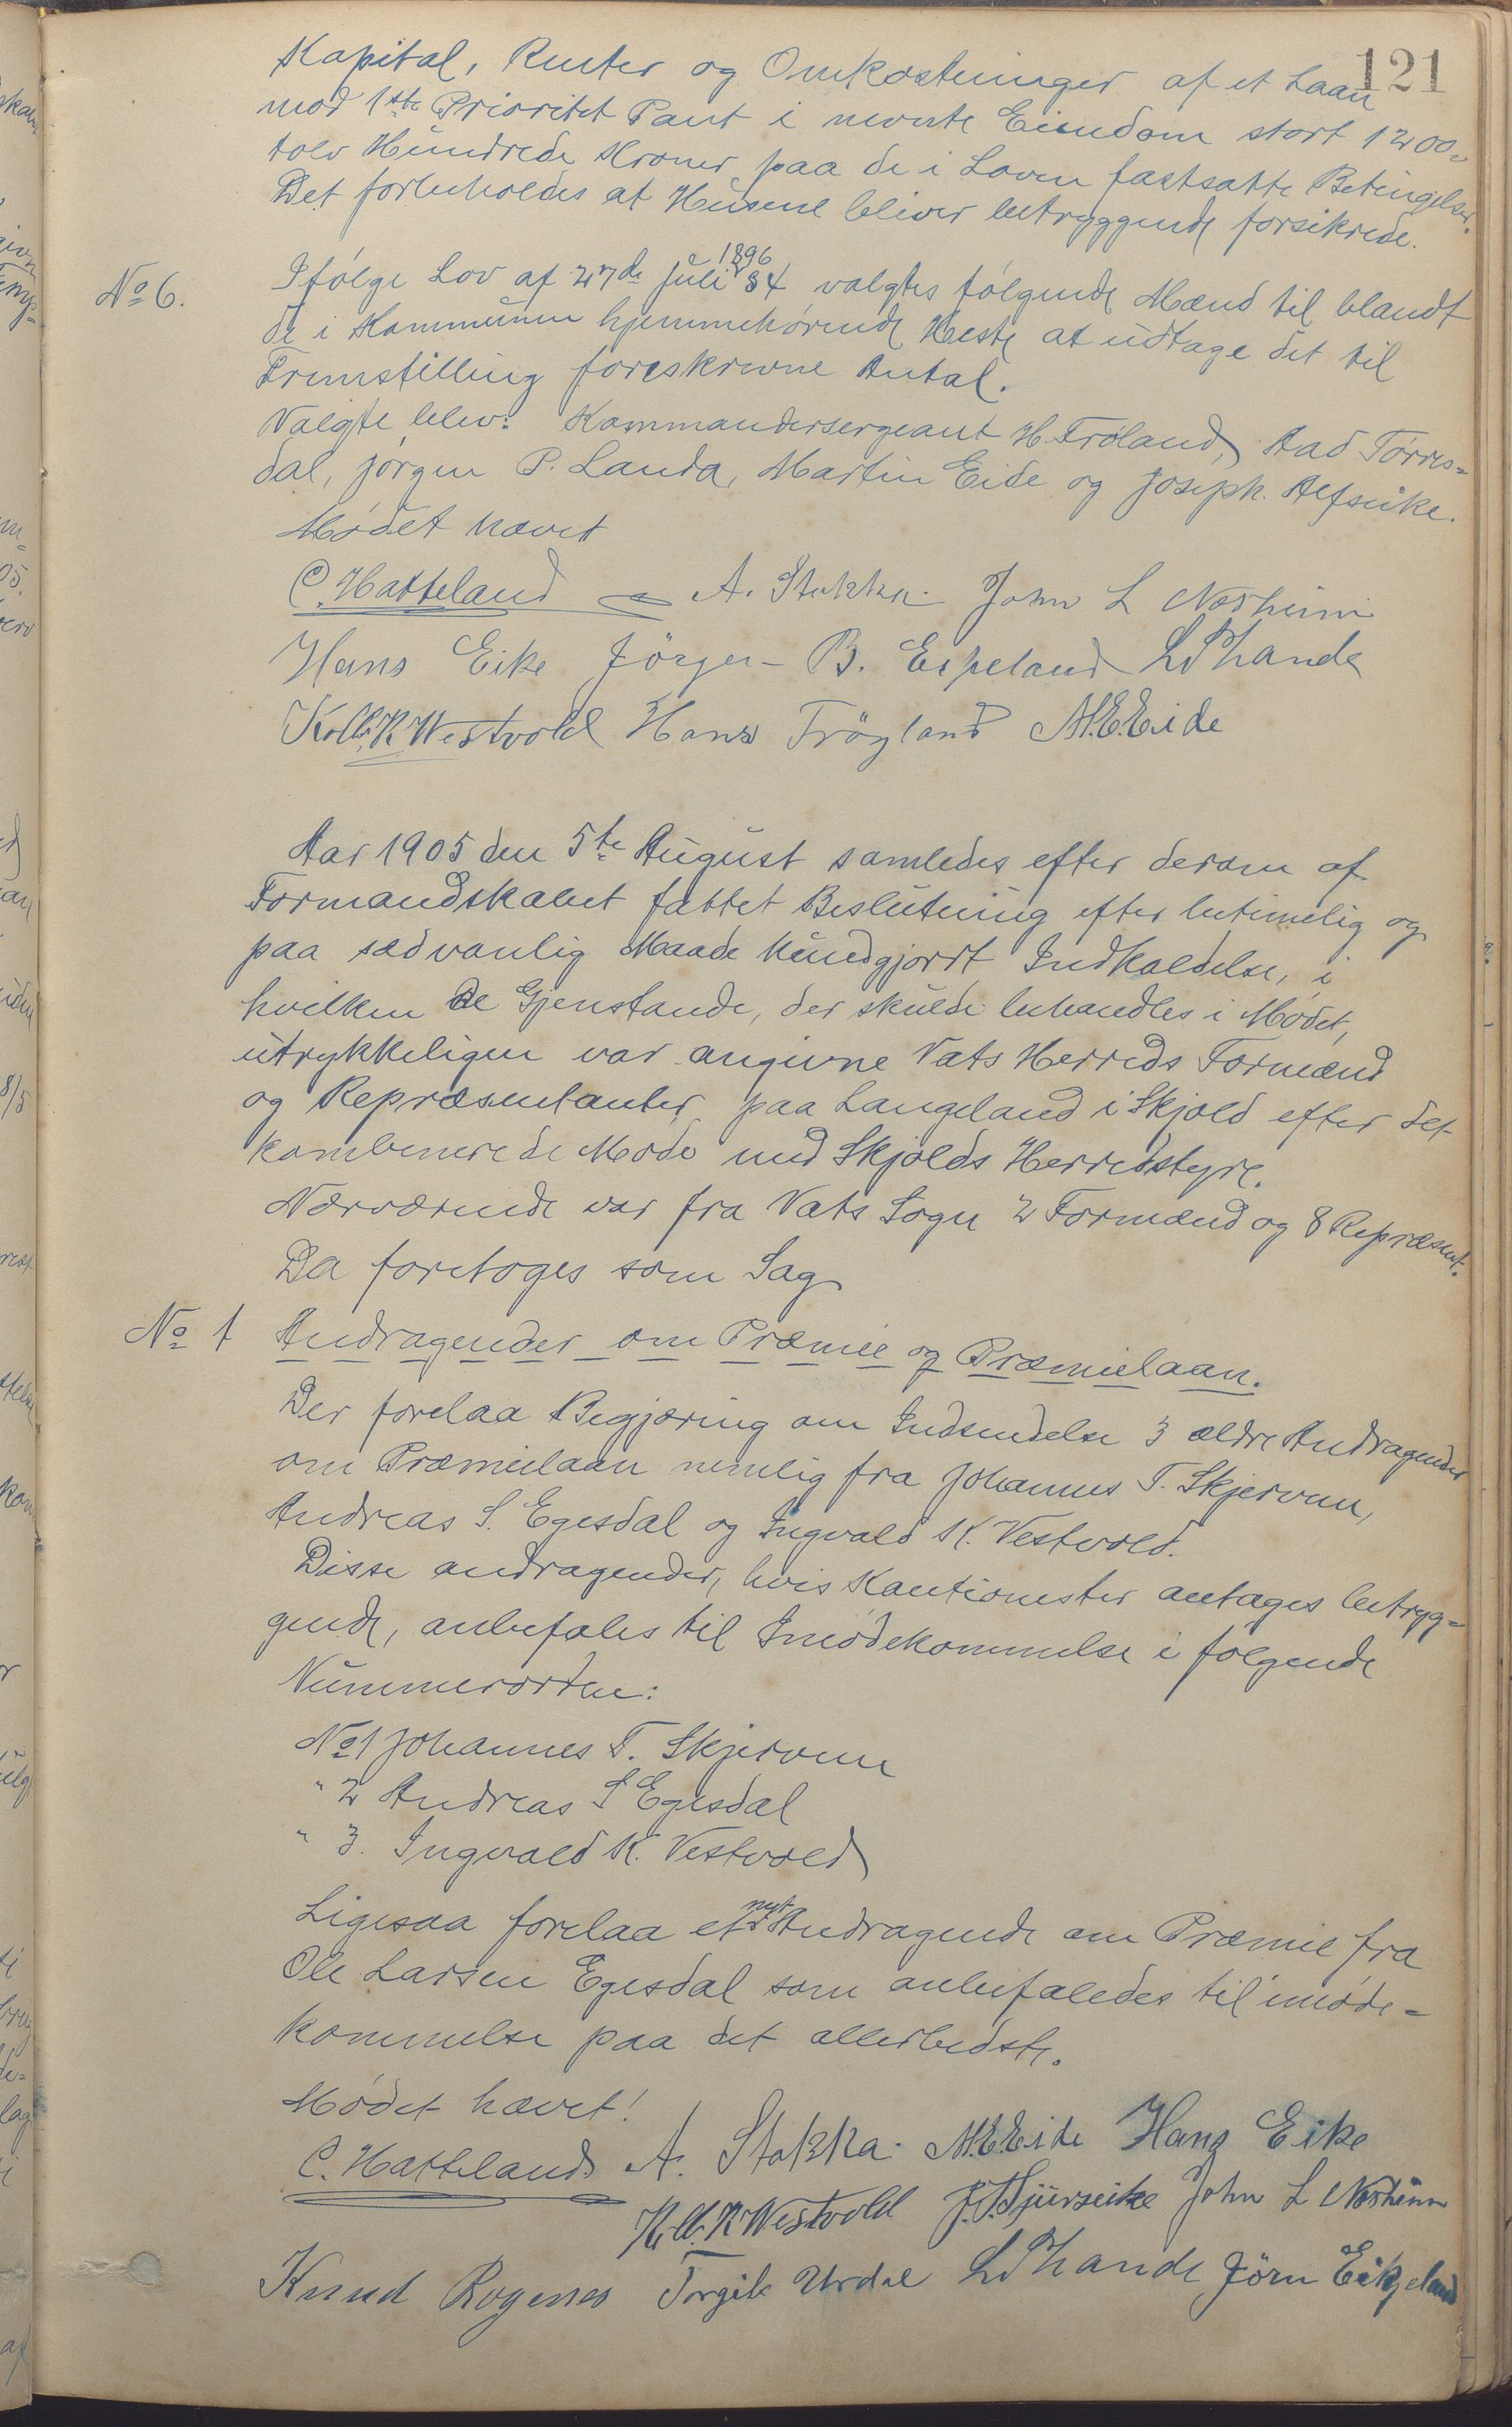 121
Kapital, Renter og Omkostninger af et Laan
mod 1ste Prioritet Pant i nevnte Eiendom stort 1200=
tolv Hundrede Kroner, paa de i Loven fastsatte Betingelser.
Det forbeholdes at Husene bliver betryggende forsikrede.
No 6. Ifølge Lov af 27de Juli 1896 § 4 valgtes følgende Mænd til blandt
de i Kommunen hjemmehørende Heste at udtage det til
Fremstilling foreskrevne Antal.
Valgte blev: Kommandersergeant H. Frøland, Aad Tørres=
dal, Jørgen P. Landa, Martin Eide og Joseph Alfseike.
Mødet hævet
C. Hatteland A. Stokka. John L Nærheim
Hans Eike Jörgen B. Espeland
K. K. Westvold Hans Fröyland M.E.Eide
Aar 1905 den 5te August samledes efter derom af
Formandskabet fattet Beslutning efter betimelig og
paa sædvanlig Maade kundgjort Indkaldelse, i
hvilken de Gjenstande, der skulde behandles i Mødet,
utrykkeligen var angivne Vats Herreds Formænd
og Repræsentanter, paa Langeland i Skjold efter det
kombinerede Møde med Skjolds Herredstyre.
Nærværende var fra Vats Sogn 2 Formænd og 8 Repræsent.
Da foretoges som Sag
No 1 Andragender om Præmie og Præmielaan.
Der forelaa Begjæring om Indsendelse 3 ældre Andragender
om Præmielaan nemlig fra Johannes T. Skjerven,
Andreas S. Egesdal og Ingvald K. Vestvold.
Disse andragender, hvis Kautionister antages betryg=
gende, anbefales til Imødekommelse i følgende
Nummerorden:
No 1 Johannes T. Skjerven
" 2 Andreas S Egesdal
" 3. Ingvald K. Vestvold
Ligesaa forelaa et nyt Andragende om Præmie fra
Ole Larsen Egesdal som anbefaledes til imøde=
kommelse paa det allerbedste.
Mødet hævet!
C. Hatteland A. Stokka. M.E.Eide Hans Eike
K. K. Westvold John L Nærheim
Knud Rogenes Torgils Urdal